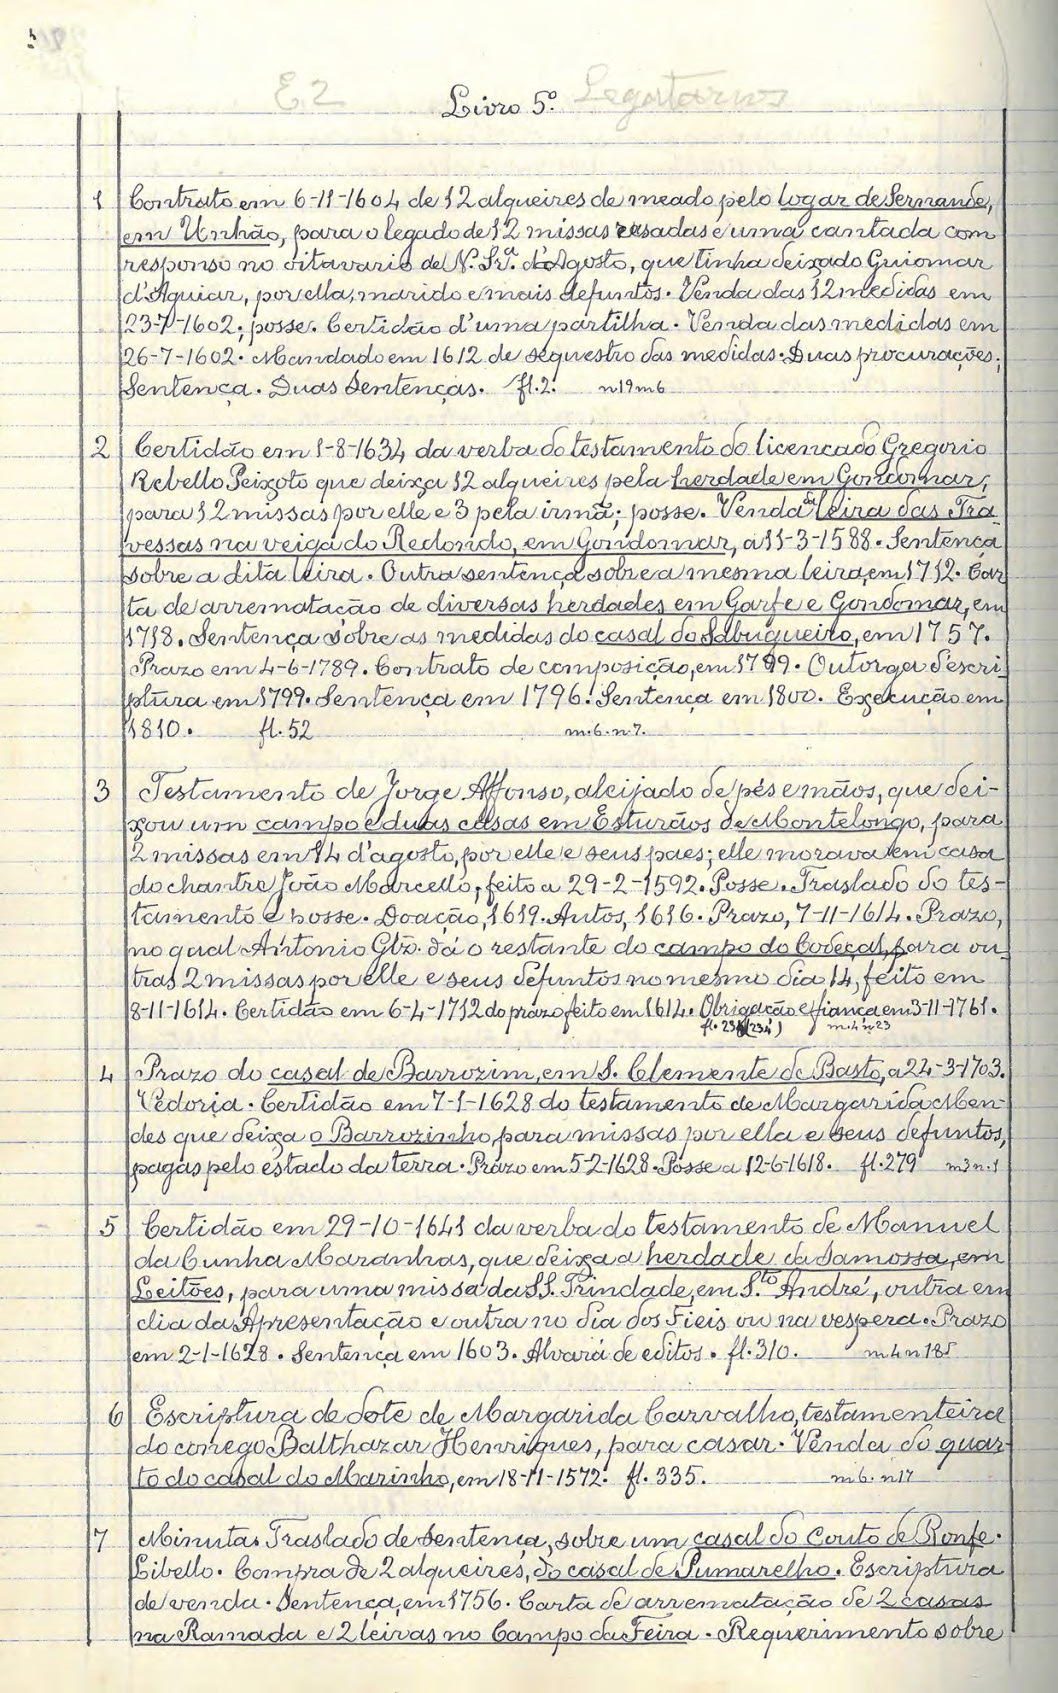 E2 Livro 5º Legatarios
1 Contrato em 6-11-1604 de 12 alqueires de meado pelo logar de Sernande,
em Unhão, para o legado de 12 missas resadas e uma cantada com
responso no oitavario de N. Srª. d'Agosto, que tinha deixado Guiomar
d'Aguiar, por ella, marido e mais defuntos. Venda das 12 medidas em
23-7-1602; posse. Certidão d'uma partilha. Venda das medidas em
26-7-1602. Mandado em 1612 de sequestro das medidas. Duas procurações;
Sentença. Duas Sentenças. fl. 2. n19m6
2 Certidão em 1-8-1634 da verba do testamento do licencado Gregorio
Rebello Peixoto que deixa 12 alqueires pela herdade em Gondomar,
para 12 missas por elle e 3 pela irmã; posse. Venda da leira das Tra
vessas na veiga do Redondo, em Gondomar, a 11-3-1588. Sentença
sobre a dita leira. Outra sentença sobre a mesma leira, em 1712. Car
ta de arrematação de diversas herdades em Garfe e Gondomar, em
1718. Sentença sobre as medidas do casal do Sabugueiro, em 1757.
Prazo em 4-6-1789. Contrato de composição, em 1799. Outorga d'escri
ptura em 1799. Sentença em 1796. Sentença em 1800. Execução em
1810. fl. 52 m. 6. n. 7.
3 Testamento de Jorge Affonso, aleijado de pés e mãos, que dei-
xou um campo e duas casas em Esturãos de Montelongo, para
2 missas em 14 d'agosto, por elle e seus paes; elle morava em casa
do chantre João Marcello, feito a 29-2-1592. Posse. Traslado do tes-
tamento e posse. Doação, 1619. Autos, 1616. Prazo, 7-11-1614. Prazo,
no qual Antonio Glz. dá o restante do campo do Codeçal, para ou
tras 2 missas por elle e seus defuntos no mesmo dia 14, feito em
8-11-1614. Certidão em 6-4-1712 do prazo feito em 1614. Obrigação e fiança em 3-11-1761.
fl. (234) m. 4 n 23
4 Prazo do casal de Barrozim, em S. Clemente de Basto, a 24-3-1703.
Vedoria. Certidão em 7-1-1628 do testamento de Margarida Men-
des que deixa o Barrozinho, para missas por ella e seus defuntos,
pagas pelo estado da terra. Prazo em 5-2-1628. Posse a 12-6-1618. fl. 279 m3 n. 1
5 Certidão em 29-10-1641 da verba do testamento de Manuel
da Cunha Maranhas, que deixa a herdade da Samossa, em
Leitões, para uma missa da SS. Trindade, em Sto André, outra em
dia da Apresentação e outra no dia dos Fieis ou na vespera. Prazo
em 2-1-1628. Sentença em 1603. Alvará de editos. fl. 310. m4 n 185
6 Escriptura de dote de Margarida Carvalho, testamenteira
do conego Balthazar Henriques, para casar. Venda do quar-
to do casal do Marinho, em 18-11-1572. fl. 335. m 6. n17
7 Minuta. Traslado de sentença, sobre um casal do Couto de Ronfe.
Libello. Compra de 2 alqueires, do casal de Pumarelho. Escriptura
de venda. Sentença, em 1756. Carta de arrematação de 2 casas
na Ramada e 2 leiras no Campo da Feira. Requerimento sobre